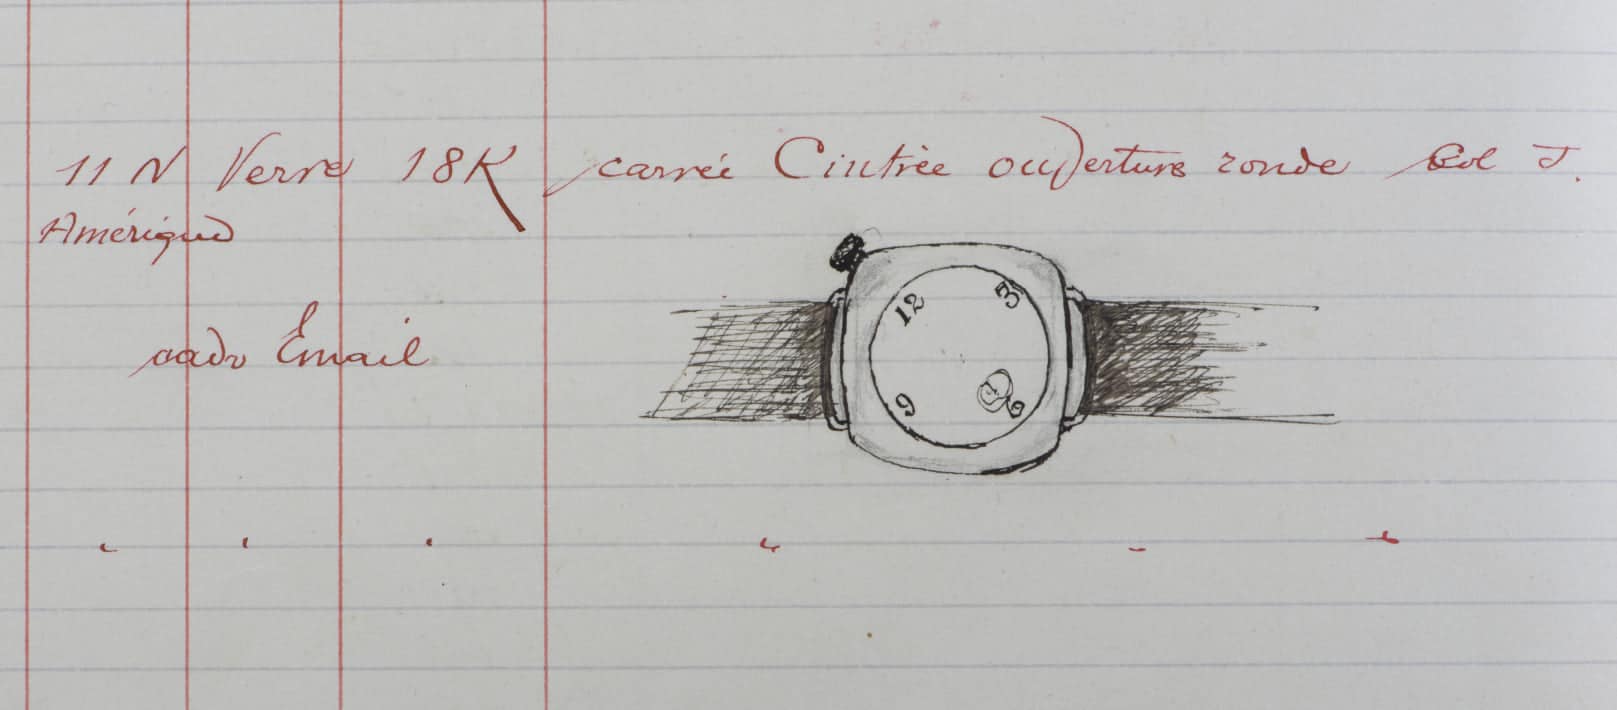 11 N Verre 18K carrée Cintrée ouverture ronde Bol J.
Amérique
cadr Email
12 3
9 6